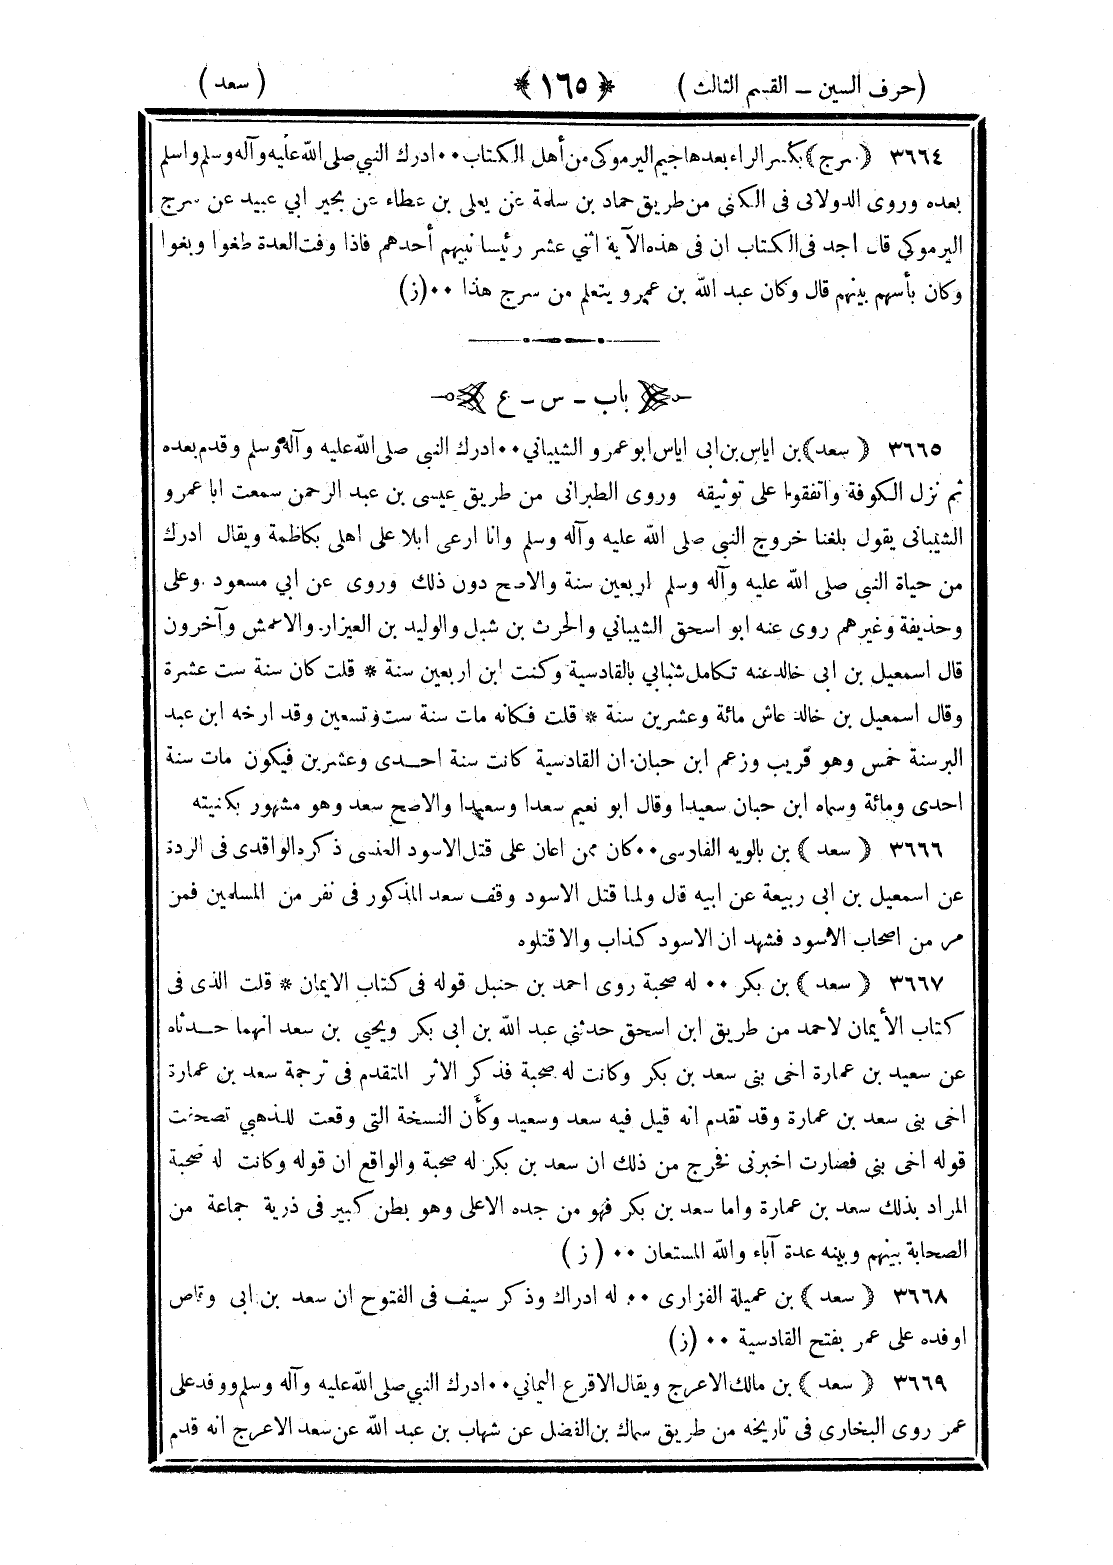 (حرف السين – القسم الثالث) ﴿١٦٥﴾ (سعد)
٣٦٦٤ (سرج) بكسر الراء بعدها جيم اليرموكى من أهل الكتاب ٠٠ ادرك النبي صلى الله عليه وآله وسلم واسلم
بعده وروى الدولابى فى الكنى من طريق حماد بن سلمة عن يعلى بن عطاء عن بحير ابي عبيد عن سرج
اليرموكى قال اجد فى الكتاب ان فى هذه الآية اثني عشر رئيسا نبيهم أحدهم فاذا وفت العدة طغوا وبغوا
وكان بأسهم بينهم قال وكان عبد الله بن عمرو يتعلم من سرج هذا ٠٠ (ز)
باب – س – ع
٣٦٦٥ (سعد) بن اياس بن ابى اياس ابو عمرو الشيباني ٠٠ ادرك النبى صلى الله عليه وآله وسلم وقدم بعده
ثم نزل الكوفة واتفقوا على توثيقه وروى الطبرانى من طريق عيسى بن عبد الرحمن سمعت ابا عمرو
الشيبانى يقول بلغنا خروج النبي صلى الله عليه وآله وسلم وانا ارعى ابلا على اهلى بكاظمة ويقال ادرك
من حياة النبي صلى الله عليه وآله وسلم اربعين سنة والاصح دون ذلك وروى عن ابي مسعود وعلى
وحذيفة وغيرهم روى عنه ابو اسحق الشيباني والحرث بن شبل والوليد بن العيزار والاعمش وآخرون
قال اسمعيل بن ابى خالد عنه تكامل شبابي بالقادسية وكنت ابن اربعين سنة * قلت كان سنة ست عشرة
وقال اسمعيل بن خالد عاش مائة وعشرين سنة * قلت فكانه مات سنة ست وتسعين وقد ارخه ابن عبد
البر سنة خمس وهو قريب وزعم ابن حبان ان القادسية كانت سنة احدى وعشرين فيكون مات سنة
احدى ومائة وسماه ابن حبان سعيدا وقال ابو نعيم سعدا وسعيدا والاصح سعد وهو مشهور بكنيته
٣٦٦٦ (سعد) بن بالويه الفارسى ٠٠ كان ممن اعان على قتل الاسود العنسى ذكره الواقدى فى الردة
عن اسمعيل بن ابى ربيعة عن ابيه قال ولما قتل الاسود وقف سعد المذكور فى نفر من المسلمين فمن
مر من اصحاب الاسود فشهد ان الاسود كذاب والا قتلوه
٣٦٦٧ (سعد) بن بكر ٠٠ له صحبة روى احمد بن حنبل قوله فى كتاب الايمان * قلت الذى فى
كتاب الأيمان لاحمد من طريق ابن اسحق حدثنى عبد الله بن ابى بكر ويحيي بن سعد انهما حدثاه
عن سعيد بن عمارة اخى بنى سعد بن بكر وكانت له صحبة فذكر الاثر المتقدم فى ترجمة سعد بن عمارة
اخى بنى سعد بن عمارة وقد تقدم انه قيل فيه سعد وسعيد وكأن النسخة التى وقعت للذهبي تصحفت
قوله اخى بنى فصارت اخبرنى فخرج من ذلك ان سعد بن بكر له صحبة والواقع ان قوله وكانت له صحبة
المراد بذلك سعد بن عمارة واما سعد بن بكر فهو من جده الاعلى وهو بطن كبير فى ذرية جماعة من
الصحابة بينهم وبينه عدة آباء والله المستعان ٠٠ (ز)
٣٦٦٨ (سعد) بن عميلة الفزارى ٠٠ له ادراك وذكر سيف فى الفتوح ان سعد بن ابى وقاص
اوفده على عمر بفتح القادسية ٠٠ (ز)
٣٦٦٩ (سعد) بن مالك الاعرج ويقال الاقرع اليماني ٠٠ ادرك النبي صلى الله عليه وآله وسلم ووفد على
عمر روى البخارى فى تاريخه من طريق سماك بن الفضل عن شهاب بن عبد الله عن سعد الاعرج انه قدم